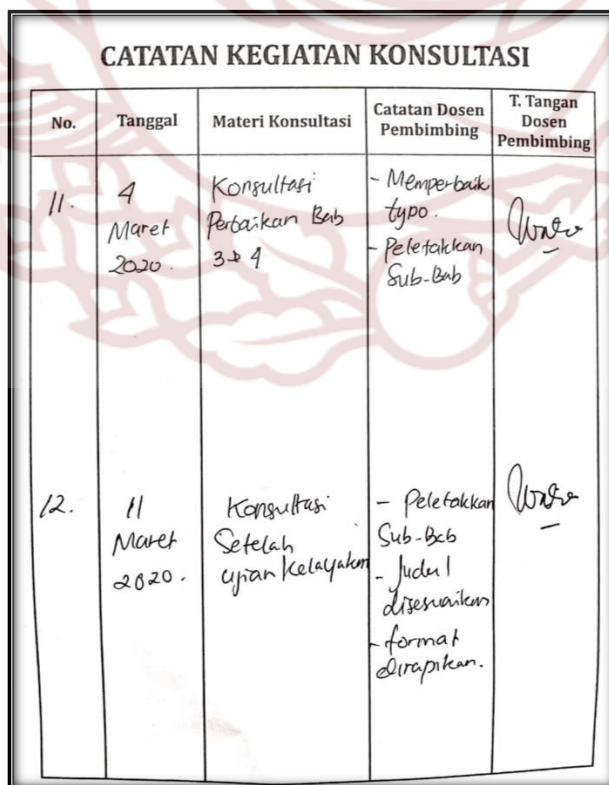 CATATAN KEGIATAN KONSULTASI
No.
Tanggal
Materi Konsultasi
Catatan Dosen
Pembimbing
T. Tangan
Dosen
Pembimbing
11.
4
Maret
2020.
Konsultasi
Perbaikan Bab
3 & 4
- Memperbaiki
typo.
- Peletakkan
Sub-Bab
12.
11
Maret
2020.
Konsultasi
Setelah
ujian kelayakan
- Peletakkan
Sub-Bab
- Judul
disesuaikan
- format
dirapikan.